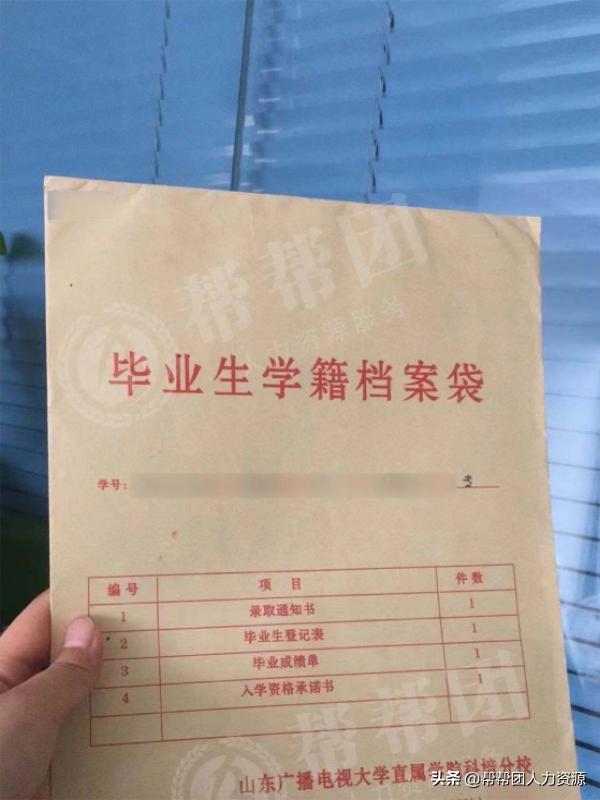 帮帮团
人力资源服务
毕业生学籍档案袋
学号:
编号 项目 件数
1 录取通知书 1
2 毕业生登记表 1
3 毕业成绩单 1
4 入学资格承诺书 1
帮帮团
山东广播电视大学直属学院科培分校
头条 @帮帮团人力资源